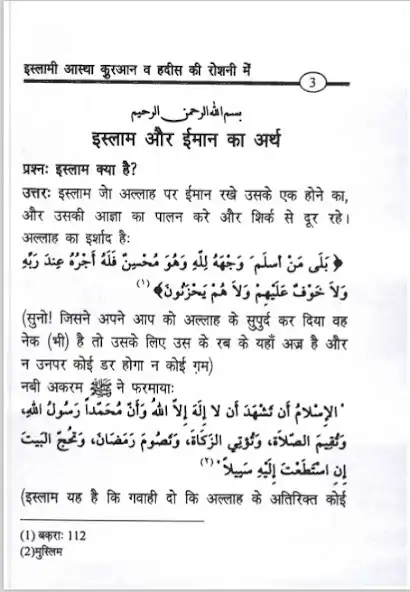 इस्लामी आस्था क़ुरआन व हदीस की रोशनी में
3
بسم الله الرحمن الرحيم
इस्लाम और ईमान का अर्थ
प्रश्नः इस्लाम क्या है?
उत्तरः इस्लाम जेा अल्लाह पर ईमान रखे उसके एक होने का,
और उसकी आज्ञा का पालन करे और शिर्क से दूर रहे।
अल्लाह का इर्शाद हैः
﴿ بَلَى مَنْ أَسْلَمَ وَجْهَهُ لِلَّهِ وَهُوَ مُحْسِنٌ فَلَهُ أَجْرُهُ عِندَ رَبِّهِ
وَلاَ خَوْفٌ عَلَيْهِمْ وَلاَ هُمْ يَحْزَنُونَ﴾ (١)
(सुनो! जिसने अपने आप को अल्लाह के सुपुर्द कर दिया वह
नेक (भी) है तो उसके लिए उस के रब के यहाँ अज्र है और
न उनपर कोई डर होगा न कोई ग़म)
नबी अकरम ﷺ ने फरमायाः
"الإِسْلاَمُ أَن تَشْهَدَ أَن لا إِلَهَ إِلاَّ اللهُ وَأَنَّ مُحَمَّداً رَسُولُ اللهِ،
وَتُقِيمَ الصَّلاَةَ، وَتُؤْتِي الزَّكَاةَ، وَتَصُومَ رَمَضَانَ، وَتَحُجَّ البَيتَ
إِنِ اسْتَطَعْتَ إِلَيْهِ سَبِيلاً" (٢)
(इस्लाम यह है कि गवाही दो कि अल्लाह के अतिरिक्त कोई
(1) बक़राः 112
(2)मुस्लिम